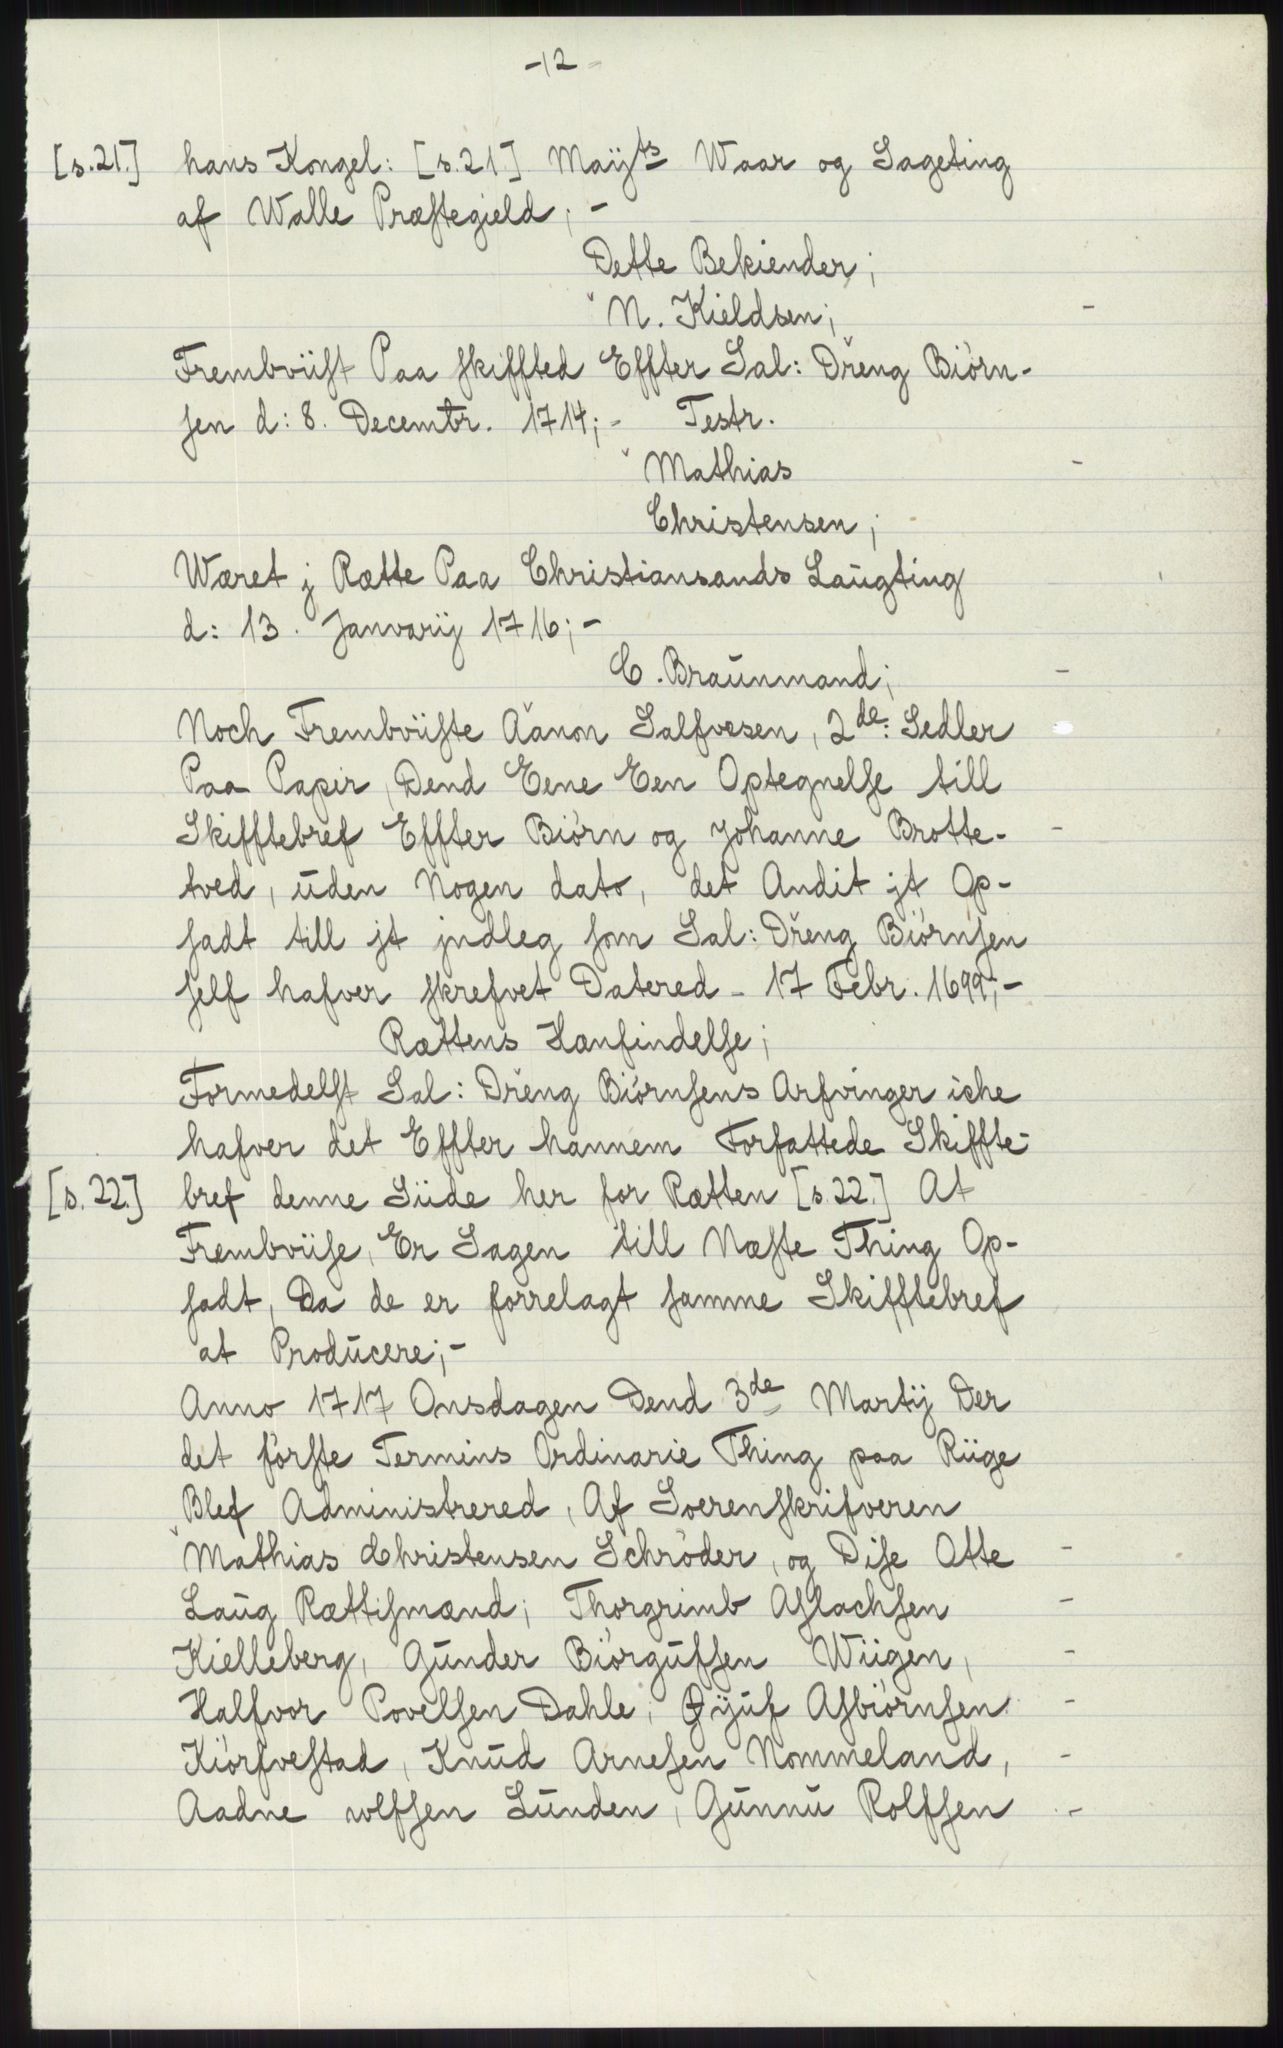 -12-
[s.21.] hans Kongel: [s.21.] Maÿts Waar og Sageting
af Walle Præstegield; -
Dette Bekiender;
N. Kieldsen;
Frembviist Paa skiffted Effter Sal: Dreng Biørn-
sen d: 8. Decembr. 1714; - Testr.
Mathias
Christensen;
Wæret j Rætte Paa Christiansands Laugting
d: 13. Janvarij 1716; -
C. Braunmand;
Noch Frembviiste Aanon Salfvesen, 2de: Sedler
Paa Papir, Dend Eene Een Optegnelse till
Skifftebref Effter Biørn og Johanne Brotte-
tved, uden Nogen dato, det Andit jt Op-
sadt till jt jndleg som Sal: Dreng Biørnsen
self hafver skrefvet Datered - 17 Febr. 1699; -
Rættens Hænfindelse;
Formedelst Sal: Dreng Biørnsens Arfvinger iche
hafver det Effter hannem Forfattede Skiffte-
[s.22.] bref denne Siide her for Rætten [s.22.] At
Frembviise, Er Sagen till Næste Thing Op-
sadt, Da de er forrelagt samme Skifftebref
at Producere; -
Anno 1717 Onsdagen Dend 3de Martij Der
det første Termins Ordinarie Thing paa Riige
Blef Administrered, Af Soerenskrifveren
Mathias Christensen Schrøder, og Dise Otte
Laug Rættismænd; Thorgrimb Aslachsen
Kielleberg, Gunder Biørgufsen Wiigen,
Halfvor Povelsen Dahle; Øÿuf Asbiørnsen
Kiørfvestad, Knud Arnesen Nommeland,
Aadne rolfsen Lunden, Gunnu Rolfsen